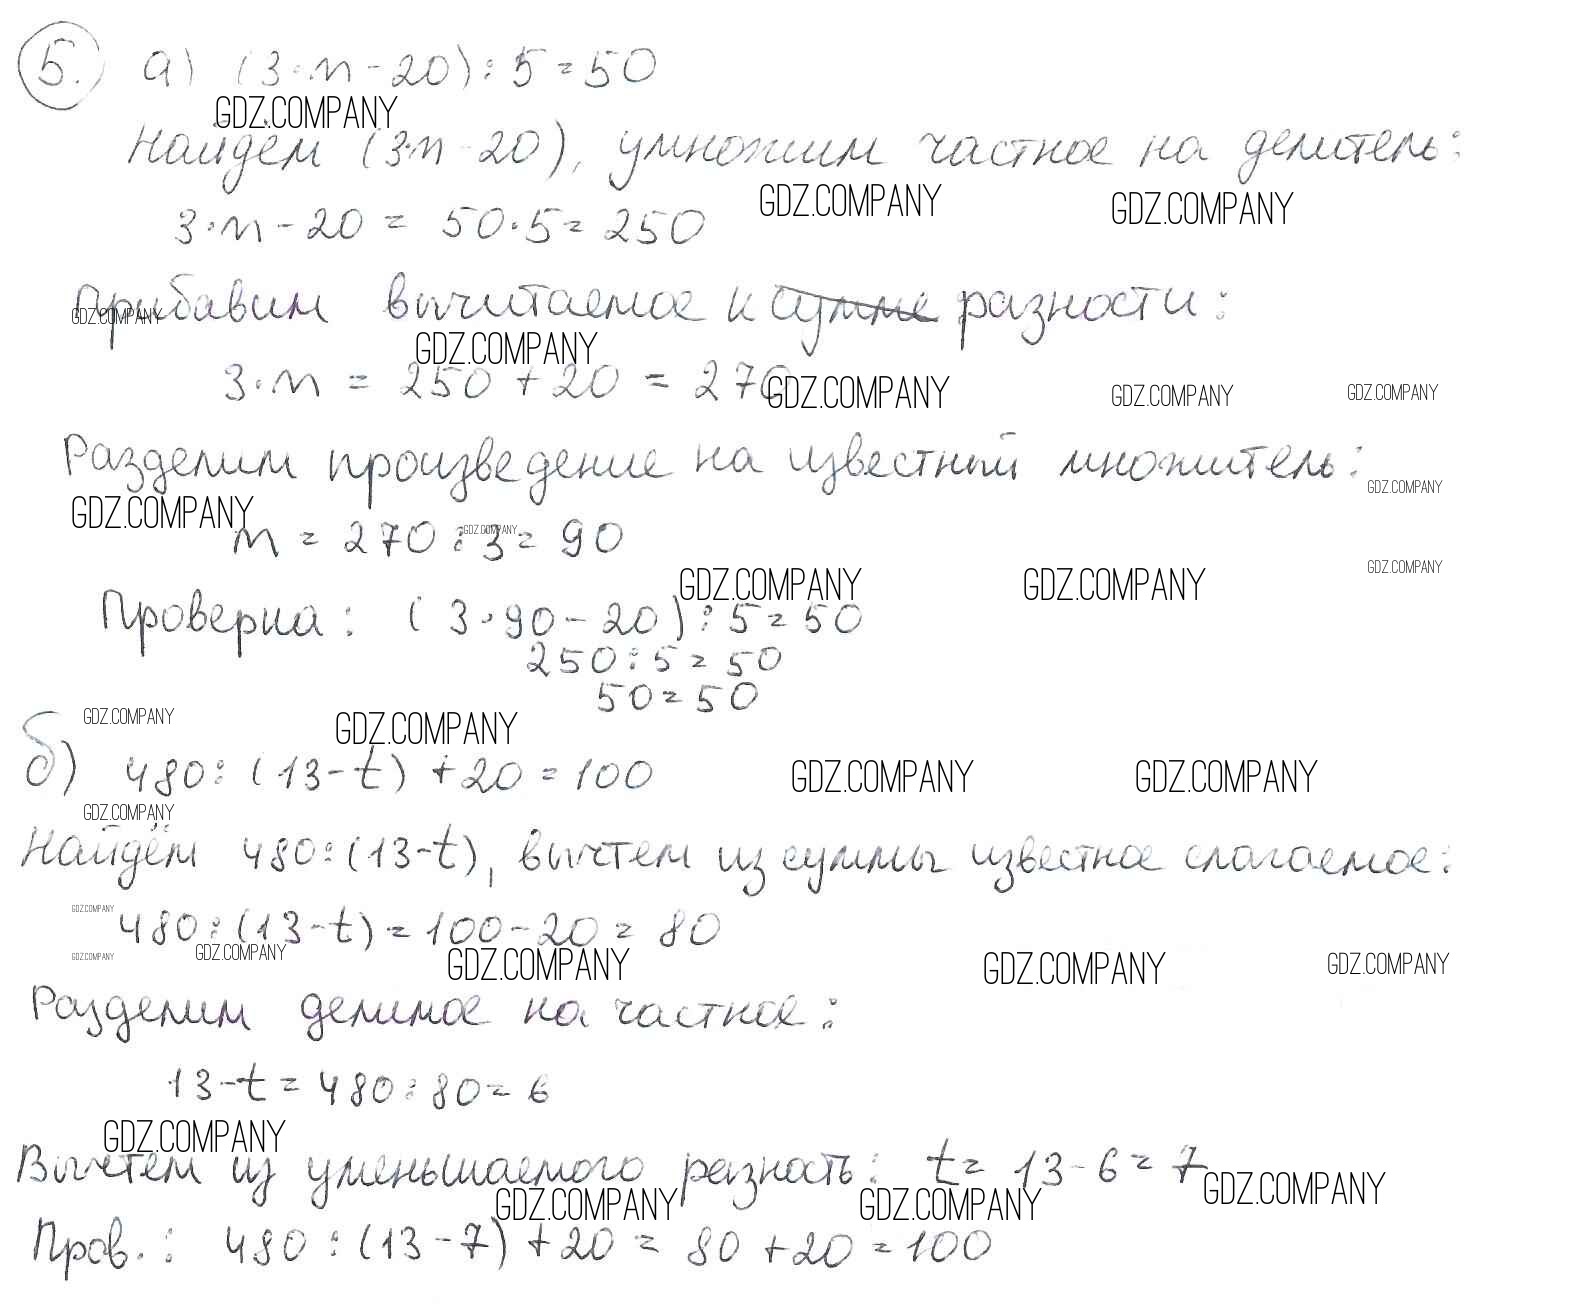 5. а) (3·m-20):5=50
GDZ.COMPANY
Найдём (3·m-20), умножим частное на делитель:
GDZ.COMPANY GDZ.COMPANY
3·m-20 = 50·5=250
Прибавим вычитаемое к сумме разности:
GDZ.COMPANY
GDZ.COMPANY
3·m = 250 + 20 = 270
GDZ.COMPANY GDZ.COMPANY GDZ.COMPANY
Разделим произведение на известный множитель:
GDZ.COMPANY
GDZ.COMPANY
m = 270 : 3 = 90
GDZ.COMPANY
GDZ.COMPANY
GDZ.COMPANY GDZ.COMPANY
Проверка: (3·90-20):5=50
250:5=50
50=50
GDZ.COMPANY GDZ.COMPANY
б) 480:(13-t)+20=100
GDZ.COMPANY GDZ.COMPANY
GDZ.COMPANY
Найдём 480:(13-t), вычтем из суммы известное слагаемое:
GDZ.COMPANY
480:(13-t)=100-20=80
GDZ.COMPANY GDZ.COMPANY GDZ.COMPANY GDZ.COMPANY GDZ.COMPANY
Разделим делимое на частное:
13-t=480:80=6
GDZ.COMPANY
Вычтем из уменьшаемого разность: t=13-6=7
GDZ.COMPANY GDZ.COMPANY GDZ.COMPANY
Пров.: 480:(13-7)+20=80+20=100